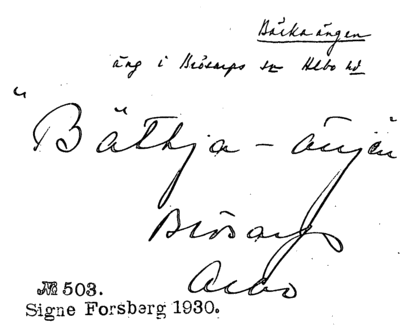 Bäckaängen
äng i Brösarps sn Albo hd
"Bätkja-änjen"
Brösarps
Albo
№ 503.
Signe Forsberg 1930.